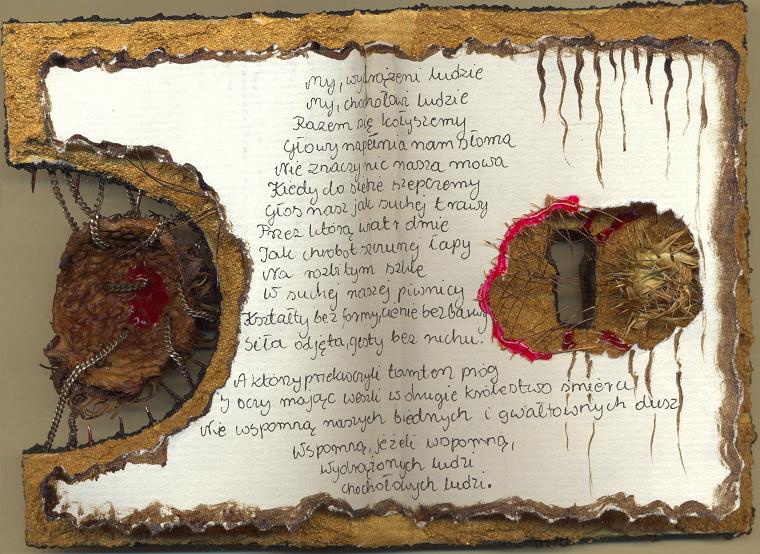 My, wydrążeni ludzie
My, chochołowi ludzie
Razem się kołyszemy
Głowy napełnia nam słoma
Nie znaczy nic nasza mowa
Kiedy do siebie szepczemy
Głos nasz jak suchej trawy
Przez którą wiatr dmie
Jak chrobot szczurzej łapy
Na rozbitym szkle
W suchej naszej piwnicy
Kształty bez formy, cienie bez barwy
Siła odjęta, gesty bez ruchu.
A którzy przekroczyli tamten próg
I oczy mając weszli w drugie królestwo śmierci
Nie wspomną naszych biednych i gwałtownych dusz
Wspomną, jeżeli wspomną,
wydrążonych ludzi
chochołowych ludzi.